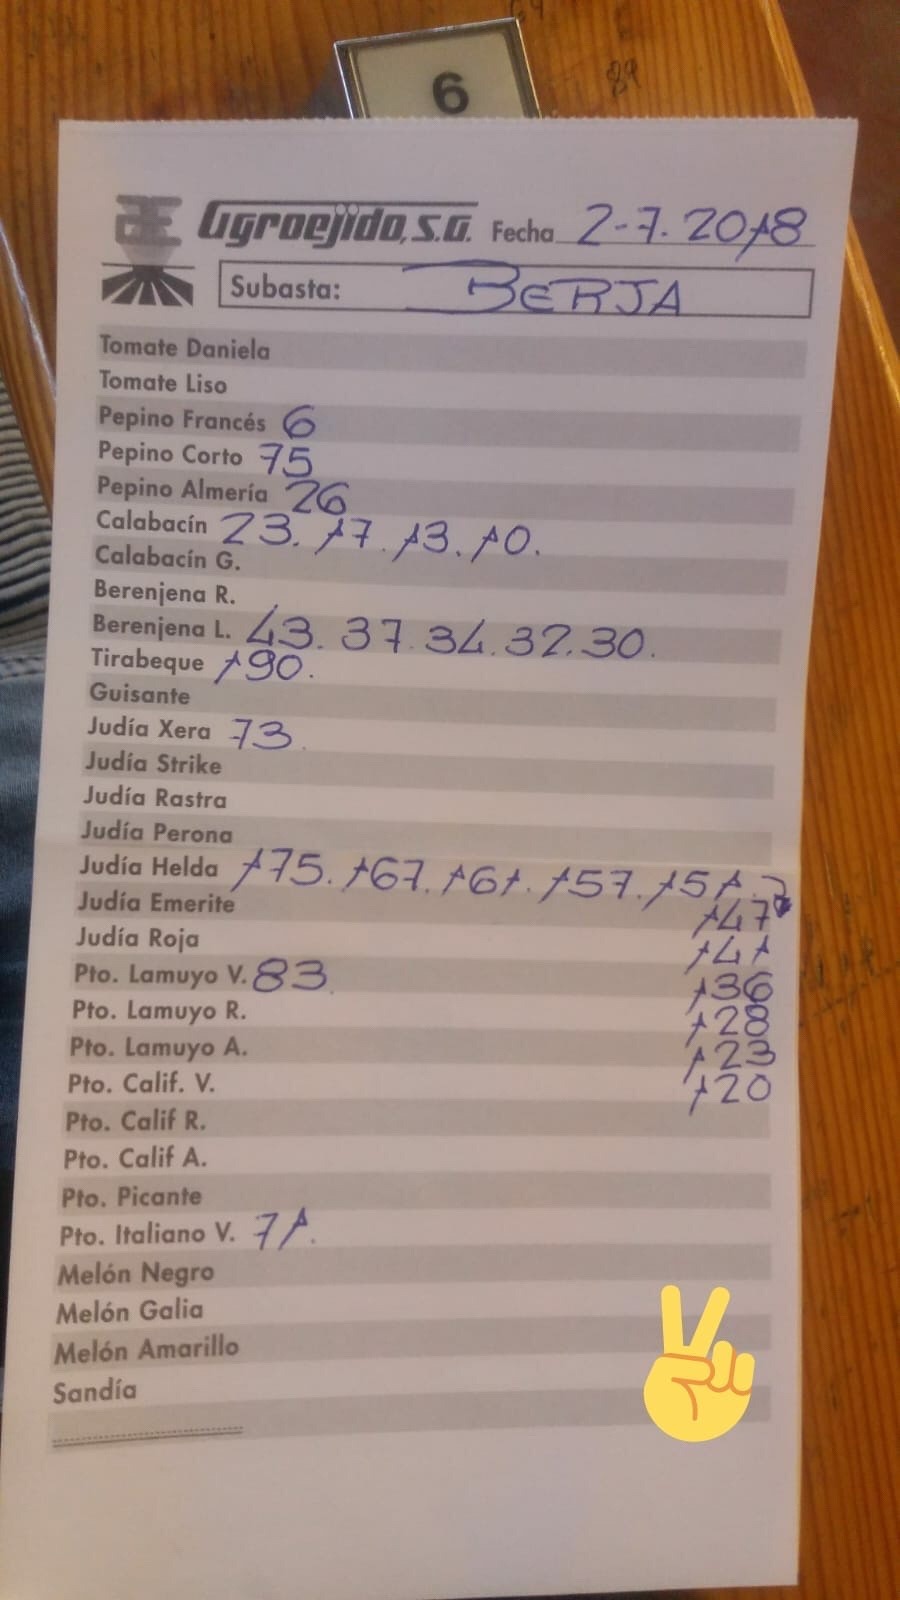 6
Agroejido, S.A. Fecha 2-7.2018
Subasta: BERJA
Tomate Daniela
Tomate Liso
Pepino Francés 6
Pepino Corto 75
Pepino Almería 26
Calabacín 23. 17. 13. 10.
Calabacín G.
Berenjena R.
Berenjena L. 43. 37. 34. 32. 30.
Tirabeque 190.
Guisante
Judía Xera 73.
Judía Strike
Judía Rastra
Judía Perona
Judía Helda 175. 167. 161. 157. 151.
147
141
136
128
123
120
Judía Emerite
Judía Roja
Pto. Lamuyo V. 83.
Pto. Lamuyo R.
Pto. Lamuyo A.
Pto. Calif. V.
Pto. Calif R.
Pto. Calif A.
Pto. Picante
Pto. Italiano V. 71.
Melón Negro
Melón Galia
Melón Amarillo
Sandía